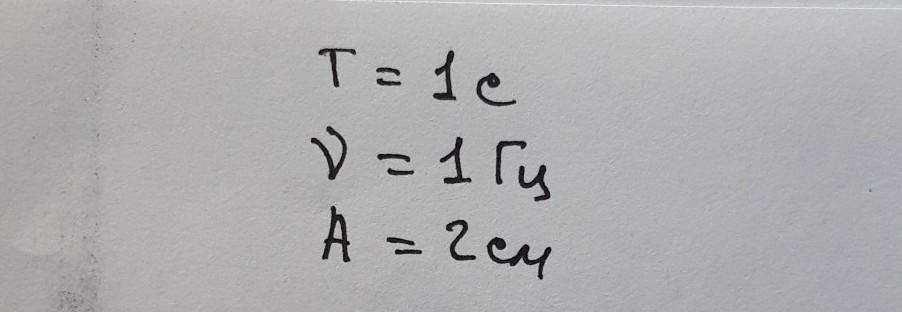 T = 1 с
ν = 1 Гц
A = 2 см